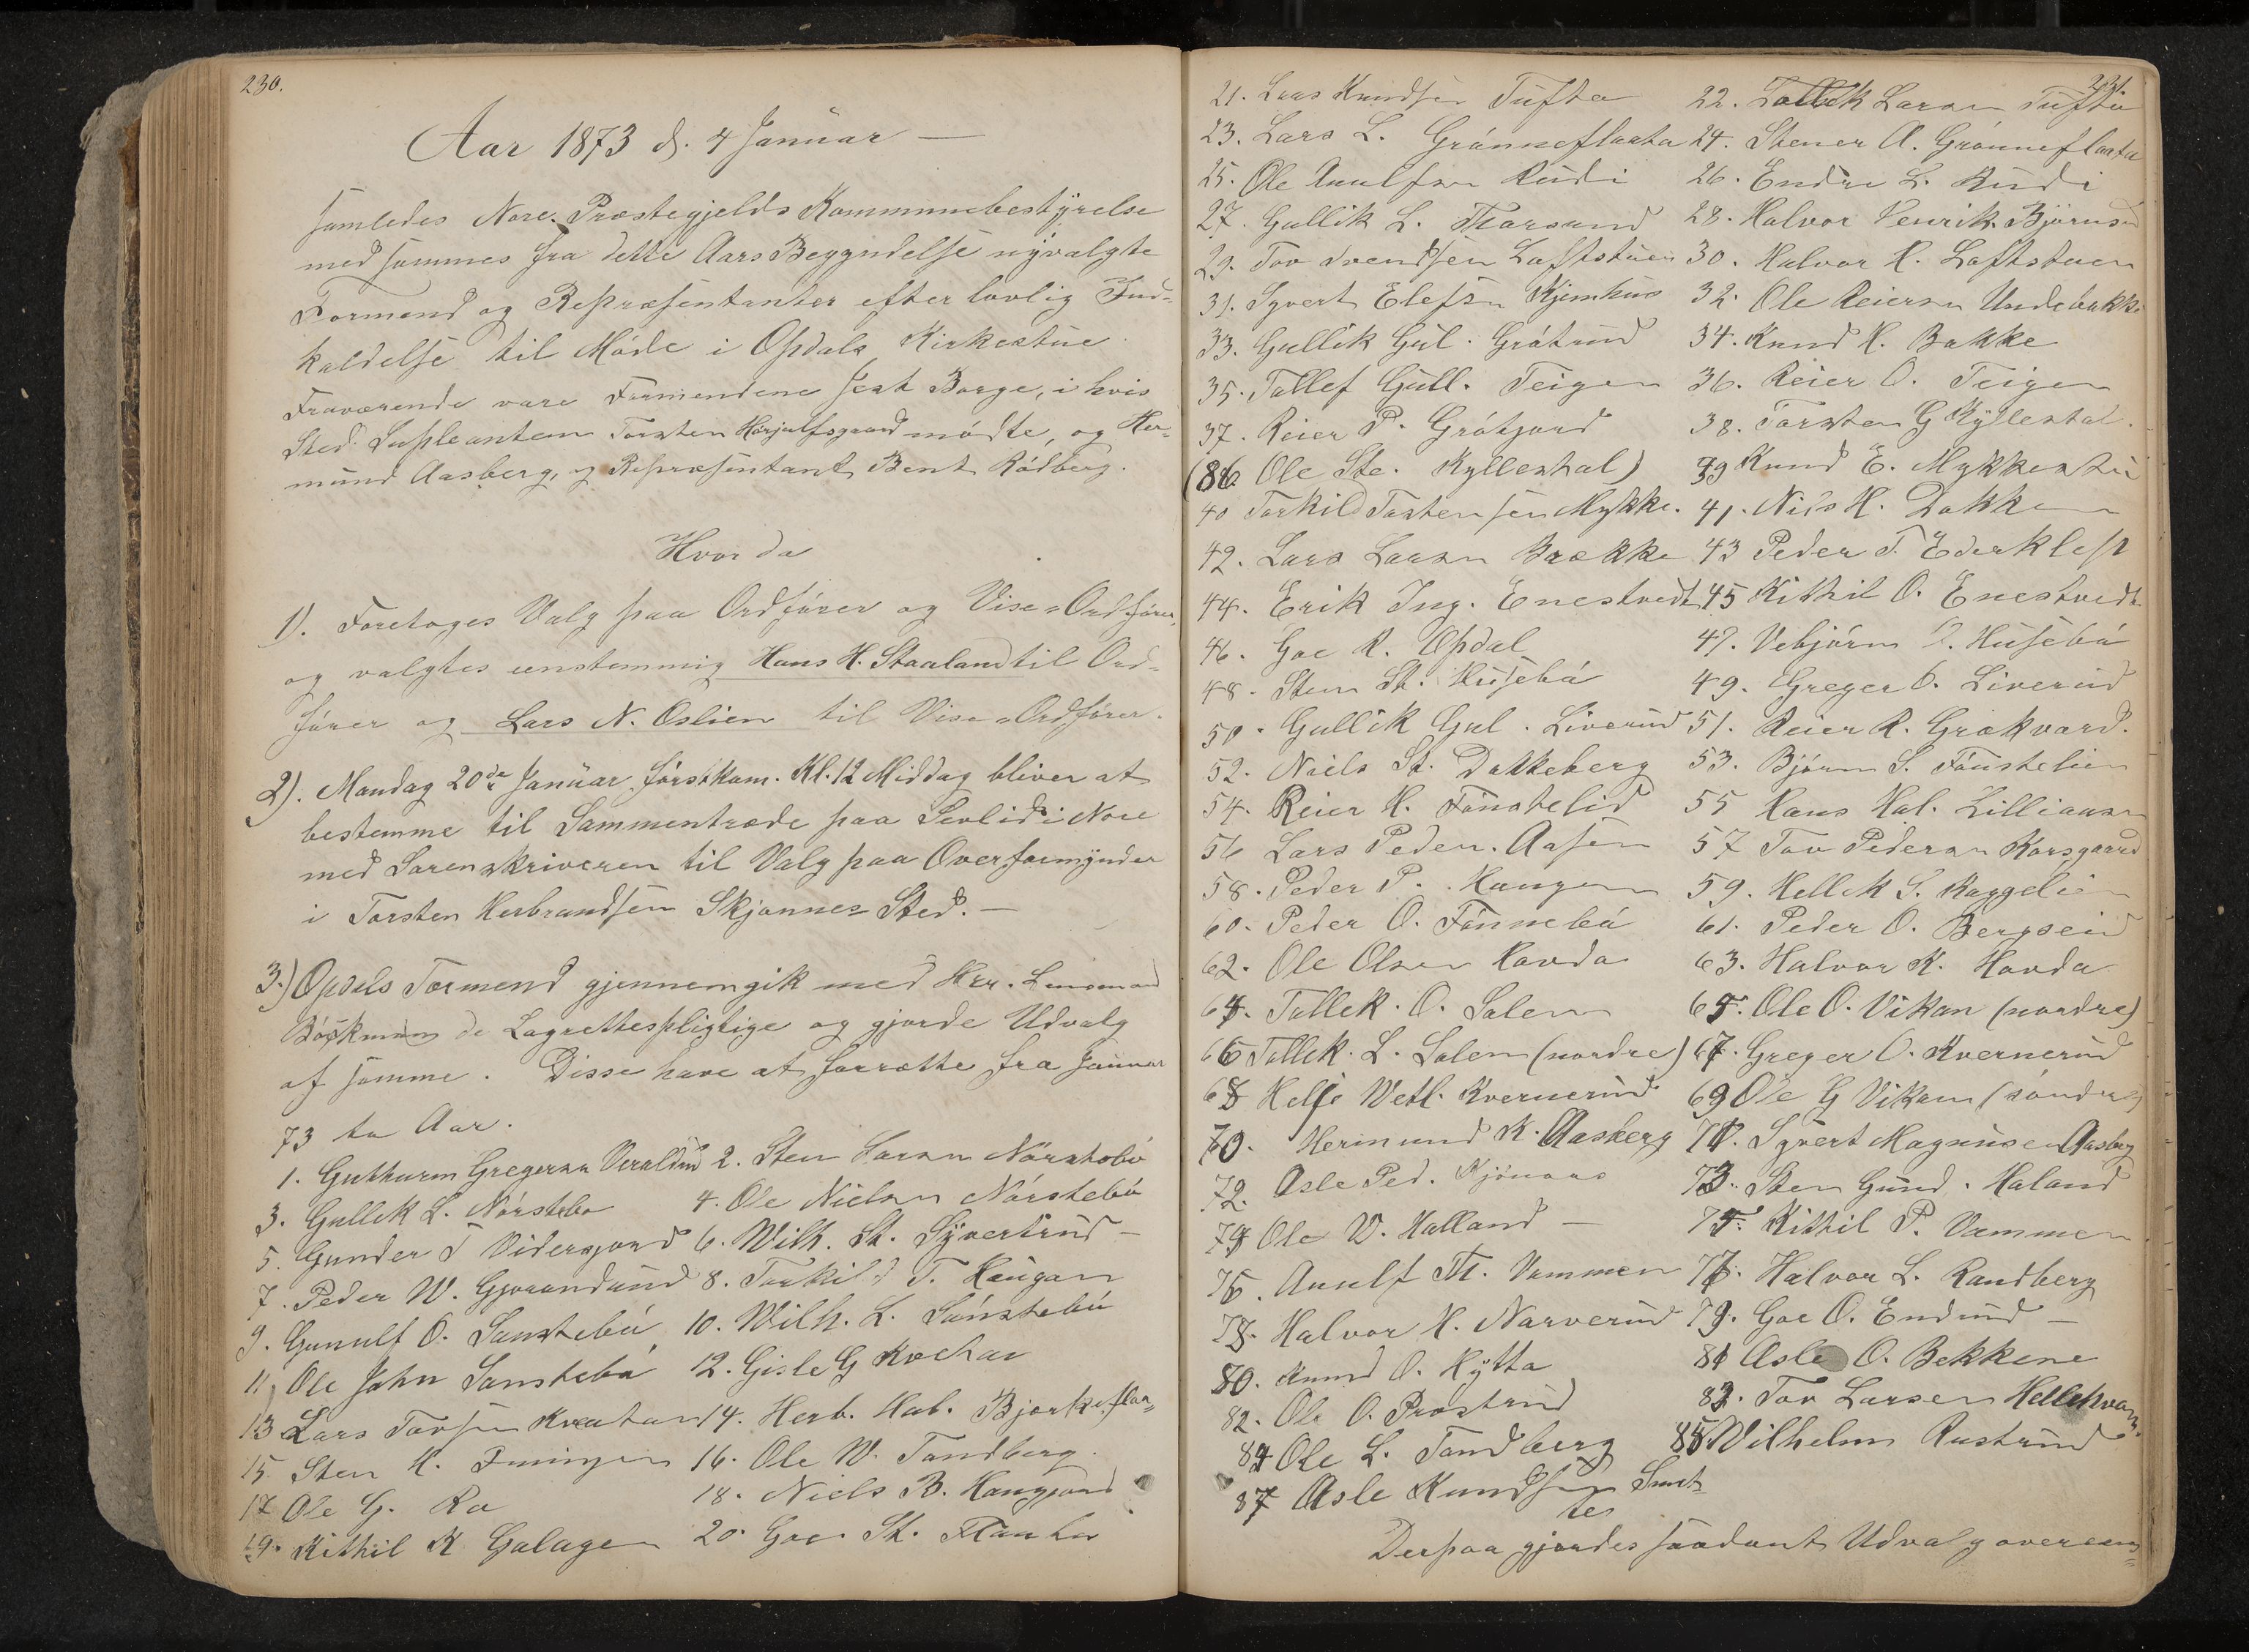 230.
Aar 1873 d. 4 Januar —
samledes Nore Præstegjelds Kommunebestyrelse
med sammes fra dette Aars Begyndelse nyvalgte
Formænd og Repræsentanter efter lovlig Ind-
kaldelse til Møde i Opdals Kirkestue.
Fraværende vare Formendene Jert Borge, i hvis
Sted Supleanten Torsten Hørjulfsgaard mødte, og Her-
mund Aasberg, og Repræsentant Bent Rødberg.
Hvor da
1). Foretoges Valg paa Ordfører og Vise=Ordfører,
og valgtes enstemmig Hans H. Staaland til Ord=
fører og Lars N. Oslien til Vise=Ordfører.
2). Mandag 20de Januar førstkom. Kl. 12 Middag bliver at
bestemme til Sammentræde paa Sevlid i Nore
med Sorenskriveren til Valg paa Overformynder
i Torsten Herbrandsen Skjønnes Sted. —
3.) Opdals Formænd gjennemgik med Hrr. Lensmand
Bøckmann de Lagrettespligtige og gjorde Udvalg
af samme. Disse have at forrætte fra Januar
73 to Aar.
1. Guthurm Gregersen Veraldrud 2. Sten Larsen Nørstebø
3. Gullek L. Nørstebø 4. Ole Nielsen Nørstebø
5. Gunder T Vidersjord 6. Wilh. St. Syvertrud —
7. Peder W. Gjorandrud 8. Torkild T. Haugan
9. Gunulf O. Sønstebø 10. Wilh. L. Sønstebø
11, Ole John Sønstebø 12. Gisle G Kvetar
13 Lars Tovsen Kvetar 14. Herb. Hal. Bjørkeflaa=
15. Sten H. Juningen 16. Ole W. Tandberg.
17 Ole G. Ro 18. Niels B. Haugjord
19. Kittil K Galagen 20. Goe St. Flanta
231.
21. Lars Knudsen Tufta 22. Tollek Larsen Tufta
23. Lars L. Grønneflaata 24. Stener A. Grønneflaata
25. Ole Anulfsen Rudi 26. Endre L. Rudi
27. Gullik L. Thorsrud 28. Halvor Henrik. Bjørnsrud
29. Tov Svendsen Loftstuen 30. Halvor H. Loftstuen
31. Syvert Elefsn Kjemhus 32. Ole Reiersen Undebakke
33. Gullik Gul. Gråtrud 34. Knud H. Bakke
35. Tollef Gull. Teigen 36. Reier O. Teigen
37. Reier P. Gråtjord 38. Torsten G Kyllestal.
(86 Ole Ste. Kyllestal) 39 Knud E. Mykkestu
40 Torkild Torstensen Mykke. 41. Nils H. Dokken
42. Lars Larsen Brække 43 Peder T. Ederklep
44. Erik Ing. Enestvedt 45 Kittil O. Enestvedt
46. Goe R. Opdal 47. Vebjørn O. Husebø
48. Sten St. Husebø 49. Greger O. Liverud
50. Gullik Gul. Liverud 51. Reier R. Grækvard.
52. Niels St. Dokkeberg 53. Bjørn S. Fønstelien
54. Reier H. Fønstelid 55 Hans Hal. Lilliaasen
56 Lars Peder. Aasen 57 Tov Pedersen Korsgaard
58. Peder P. Haugen 59. Hellek S. Raggelien
60. Peder O. Fønnebø 61. Peder O. Bergseid
62. Ole Olsen Hovda 63. Halvor K. Hovda
64. Tollek. O. Solem 65. Ole O. Vikan (nordre)
66 Tollek. L. Solem (nordre) 67. Greger O. Kvernerud
68 Helje Wetl. Kvernerud 69 Ole G Vikan (søndre)
70. Hermund K. Aasberg 71. Syvert Magnusen Aasberg
72. Osle Ped. Kjønaas 73. Sten Gund. Haland
74 Ole W. Halland — 75. Kittil P. Vammen
76. Anulf Th. Vammen 77. Halvor L. Randberg
78. Halvor H. Narverud 79. Goe O. Endrud —
80. Knud O. Hytta 81 Asle O. Bekkene
82. Ole O. Prostrud 83. Tov Larsen Hellekvam.
84 Ole L. Tandberg 85 Wilhelm Rustrud
87 Asle Knudsen Smet-
te
Derpaa gjordes saadant Udvalg overens=